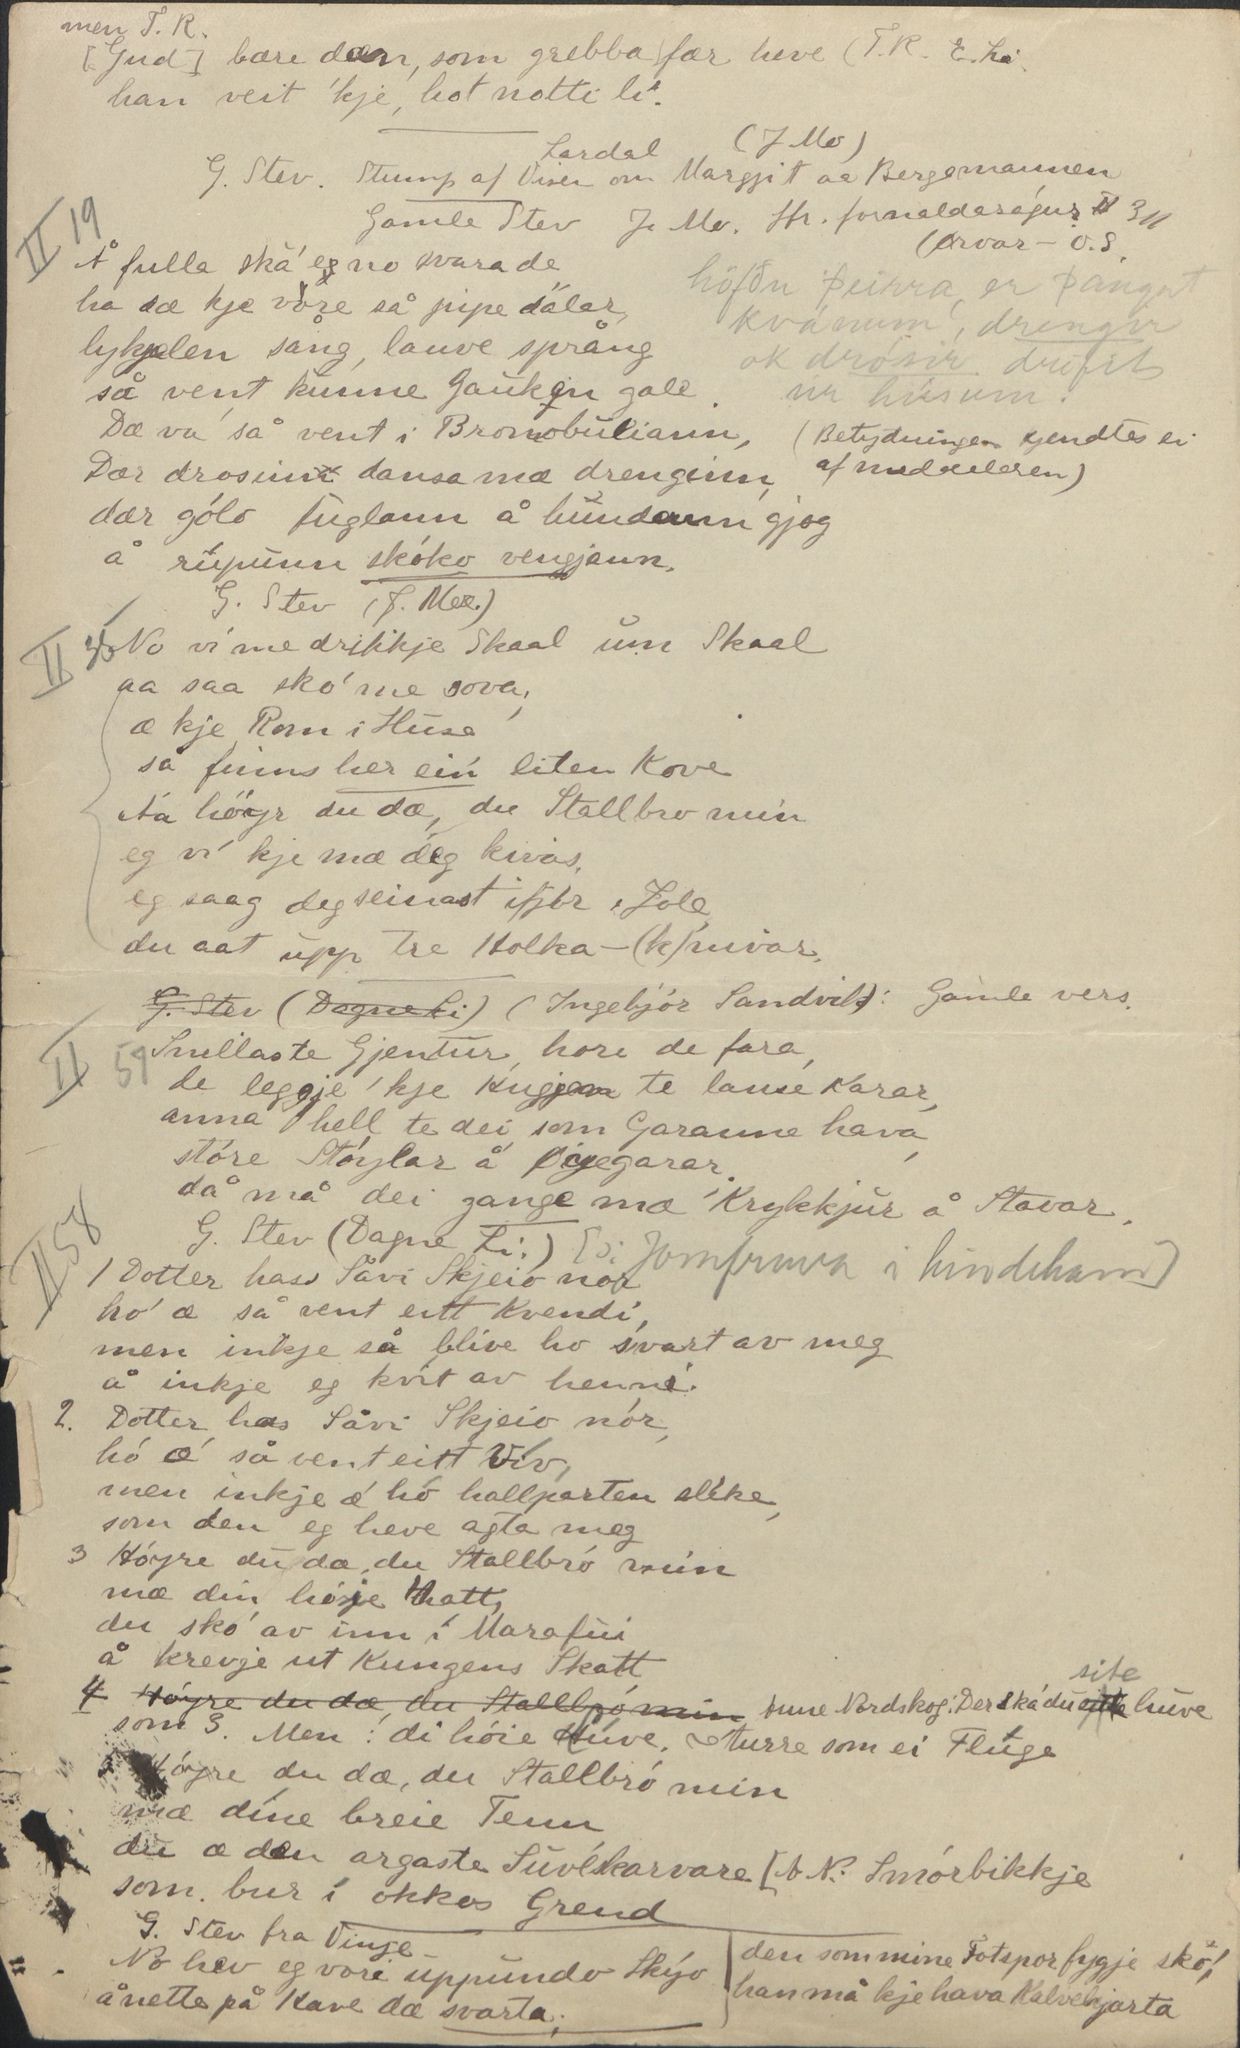 men T. R.
[Gud] bære dæn, som grebba fær heve (T. R. E. ha.
han veit 'kje, hot notti li'.
Lardal (J. Mo)
G. Stev. Stump af Visen om Margjit aa Bergemannen
Gamle Stev J. Mo. Hr. fornaldarsögur II 311
(Ørvar-O.S.
II 19
Å fulla ská eg no svara de
ha dæ kje vöre så pipe dålar,
lykjelen sång, lauve språng
så vent kunne Gaukjin gale.
höfðu þeirra, er þangat
kvánum, drengir
ok drósir drifit
úr húsum.
Dæ va' så vent i Bromobuliann,
(Betydningen kjendtes ei
af meddeleren)
Dær drosinn dansa mæ drenginn,
dær gólo fuglann å hundann gjög
å rupunn skóko vengjann.
G. Stev (J. Mo.)
II 36
No ví me drikkje Skaal um Skaal
aa saa skó' me sova,
æ kje Rom i Huse
så finns her ein liten Kove
Aa höyr du dæ, du Stallbro min
eg vi' kje mæ deg kivas,
eg saag deg seinast ifjor i Jole,
du aat upp tre Holka-(k)nivar.
G. Stev (Dagne Li) (Ingebjór Sandvik): Gamle vers.
II 59
Snillaste Gjentur, hore de fara,
de leggje 'kje Hugjen te lause Karar,
anna hell te dei som Garanne hava,
stóre Stöylar å Øigegarar.
då må dei gange mæ Krykkjur å Stavar.
II 58
G. Stev (Dagne Li.) [Si Jomfruva i hindeham]
1 Dotter hass Såvi Skjeio nór
hó æ så vent eitt Kvendi,
men inkje så blive ho svart av meg
å inkje eg kvit av henni.
2. Dotter has Såvi Skjeio nór,
hó æ' så vent eitt Viv,
men inkje æ hó hallparten slike,
som den eg heve agta meg
3 Höyre du dæ, du Stallbró min
mæ din höie Hatt,
du skó av inn i Marafui
å krevje ut Kungens Skatt
4 Höyre du dæ, du Stallbró min Inne Nordskog: Der ská du site huve
som 3. Men: di höie Huve, turre som ei Fluge
Höyre du dæ, du Stallbró min
mæ dine breie Tenn
du æ den argaste Suvlskarvare [A. N: Smörbikkje
som bur i okkos Grend
G. Stev fra Vinje
No hev eg vori uppundo Skýo
å nette på Kave dæ svarta;
den som mine Fotspor fygje skó,
han må kje hava Kalvehjarta